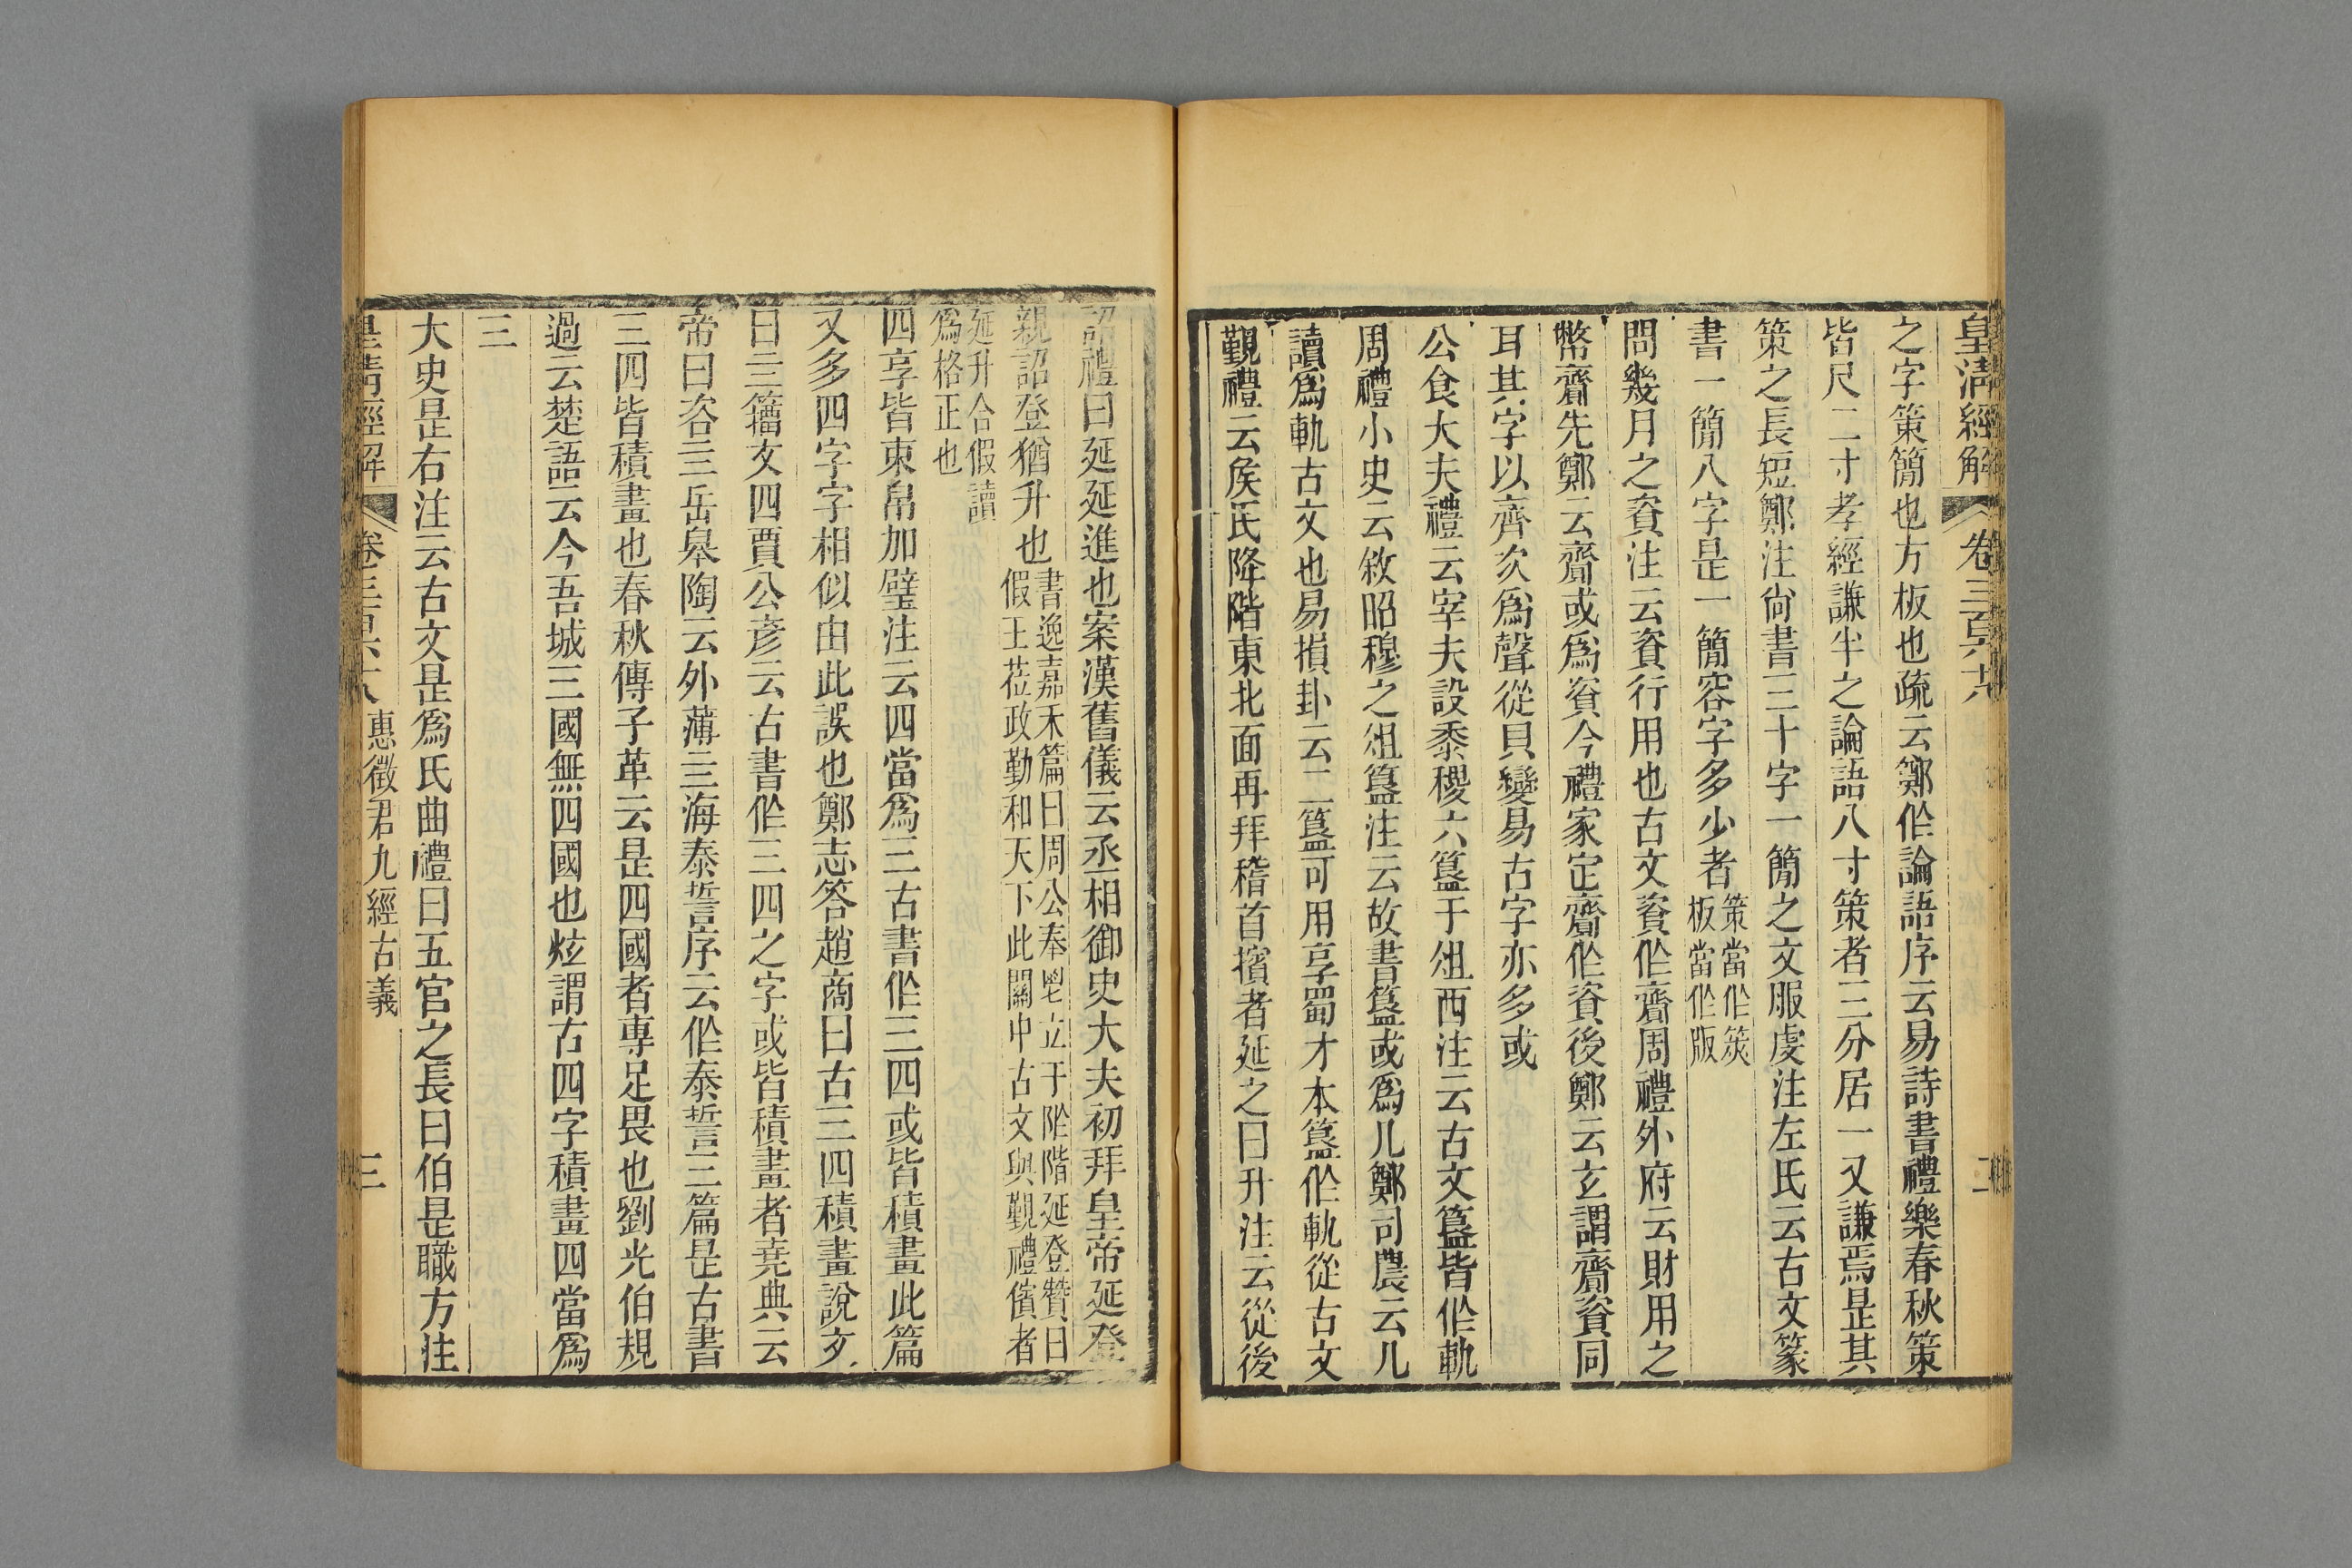 皇清經解 卷三百六十八 二
之字策簡也方板也疏云鄭作論語序云易詩書禮樂春秋策
皆尺二寸孝經謙半之論語八寸策者三分居一又謙焉是其
策之長短鄭注尙書三十字一簡之文服虔注左氏云古文篆
書一簡八字是一簡容字多少者
策當作筴
板當作版
問幾月之資注云資行用也古文資作齎周禮外府云財用之
幣齎先鄭云齎或爲資今禮家定齎作資後鄭云玄謂齎資同
耳其字以齊次爲聲從貝變易古字亦多或
公食大夫禮云宰夫設黍稷六簋于俎西注云古文簋皆作軌
周禮小史云敘昭穆之俎簋注云故書簋或爲几鄭司農云几
讀爲軌古文也易損卦云二簋可用享蜀才本簋作軌從古文
覲禮云侯氏降階東北面再拜稽首擯者延之曰升注云從後
詔禮曰延延進也案漢舊儀云丞相御史大夫初拜皇帝延登
親詔登猶升也
書逸嘉禾篇曰周公奉鬯立于阼階延登贊曰
假王莅政勤和天下此關中古文與覲禮儐者
延升合假讀
爲格正也
四享皆束帛加璧注云四當爲三古書作三四或皆積畫此篇
又多四字字相似由此誤也鄭志答趙商曰古三四積畫說文
曰亖籒文四賈公彥云古書作三四之字或皆積畫者堯典云
帝曰咨亖岳皋陶云外薄亖海泰誓序云作泰誓三篇是古書
三四皆積畫也春秋傳子革云是四國者專足畏也劉光伯規
過云楚語云今吾城三國無四國也炫謂古四字積畫四當爲
三
大史是右注云古文是爲氏曲禮曰五官之長曰伯是職方注
皇清經解 卷三百六十八 惠徵君九經古義 三